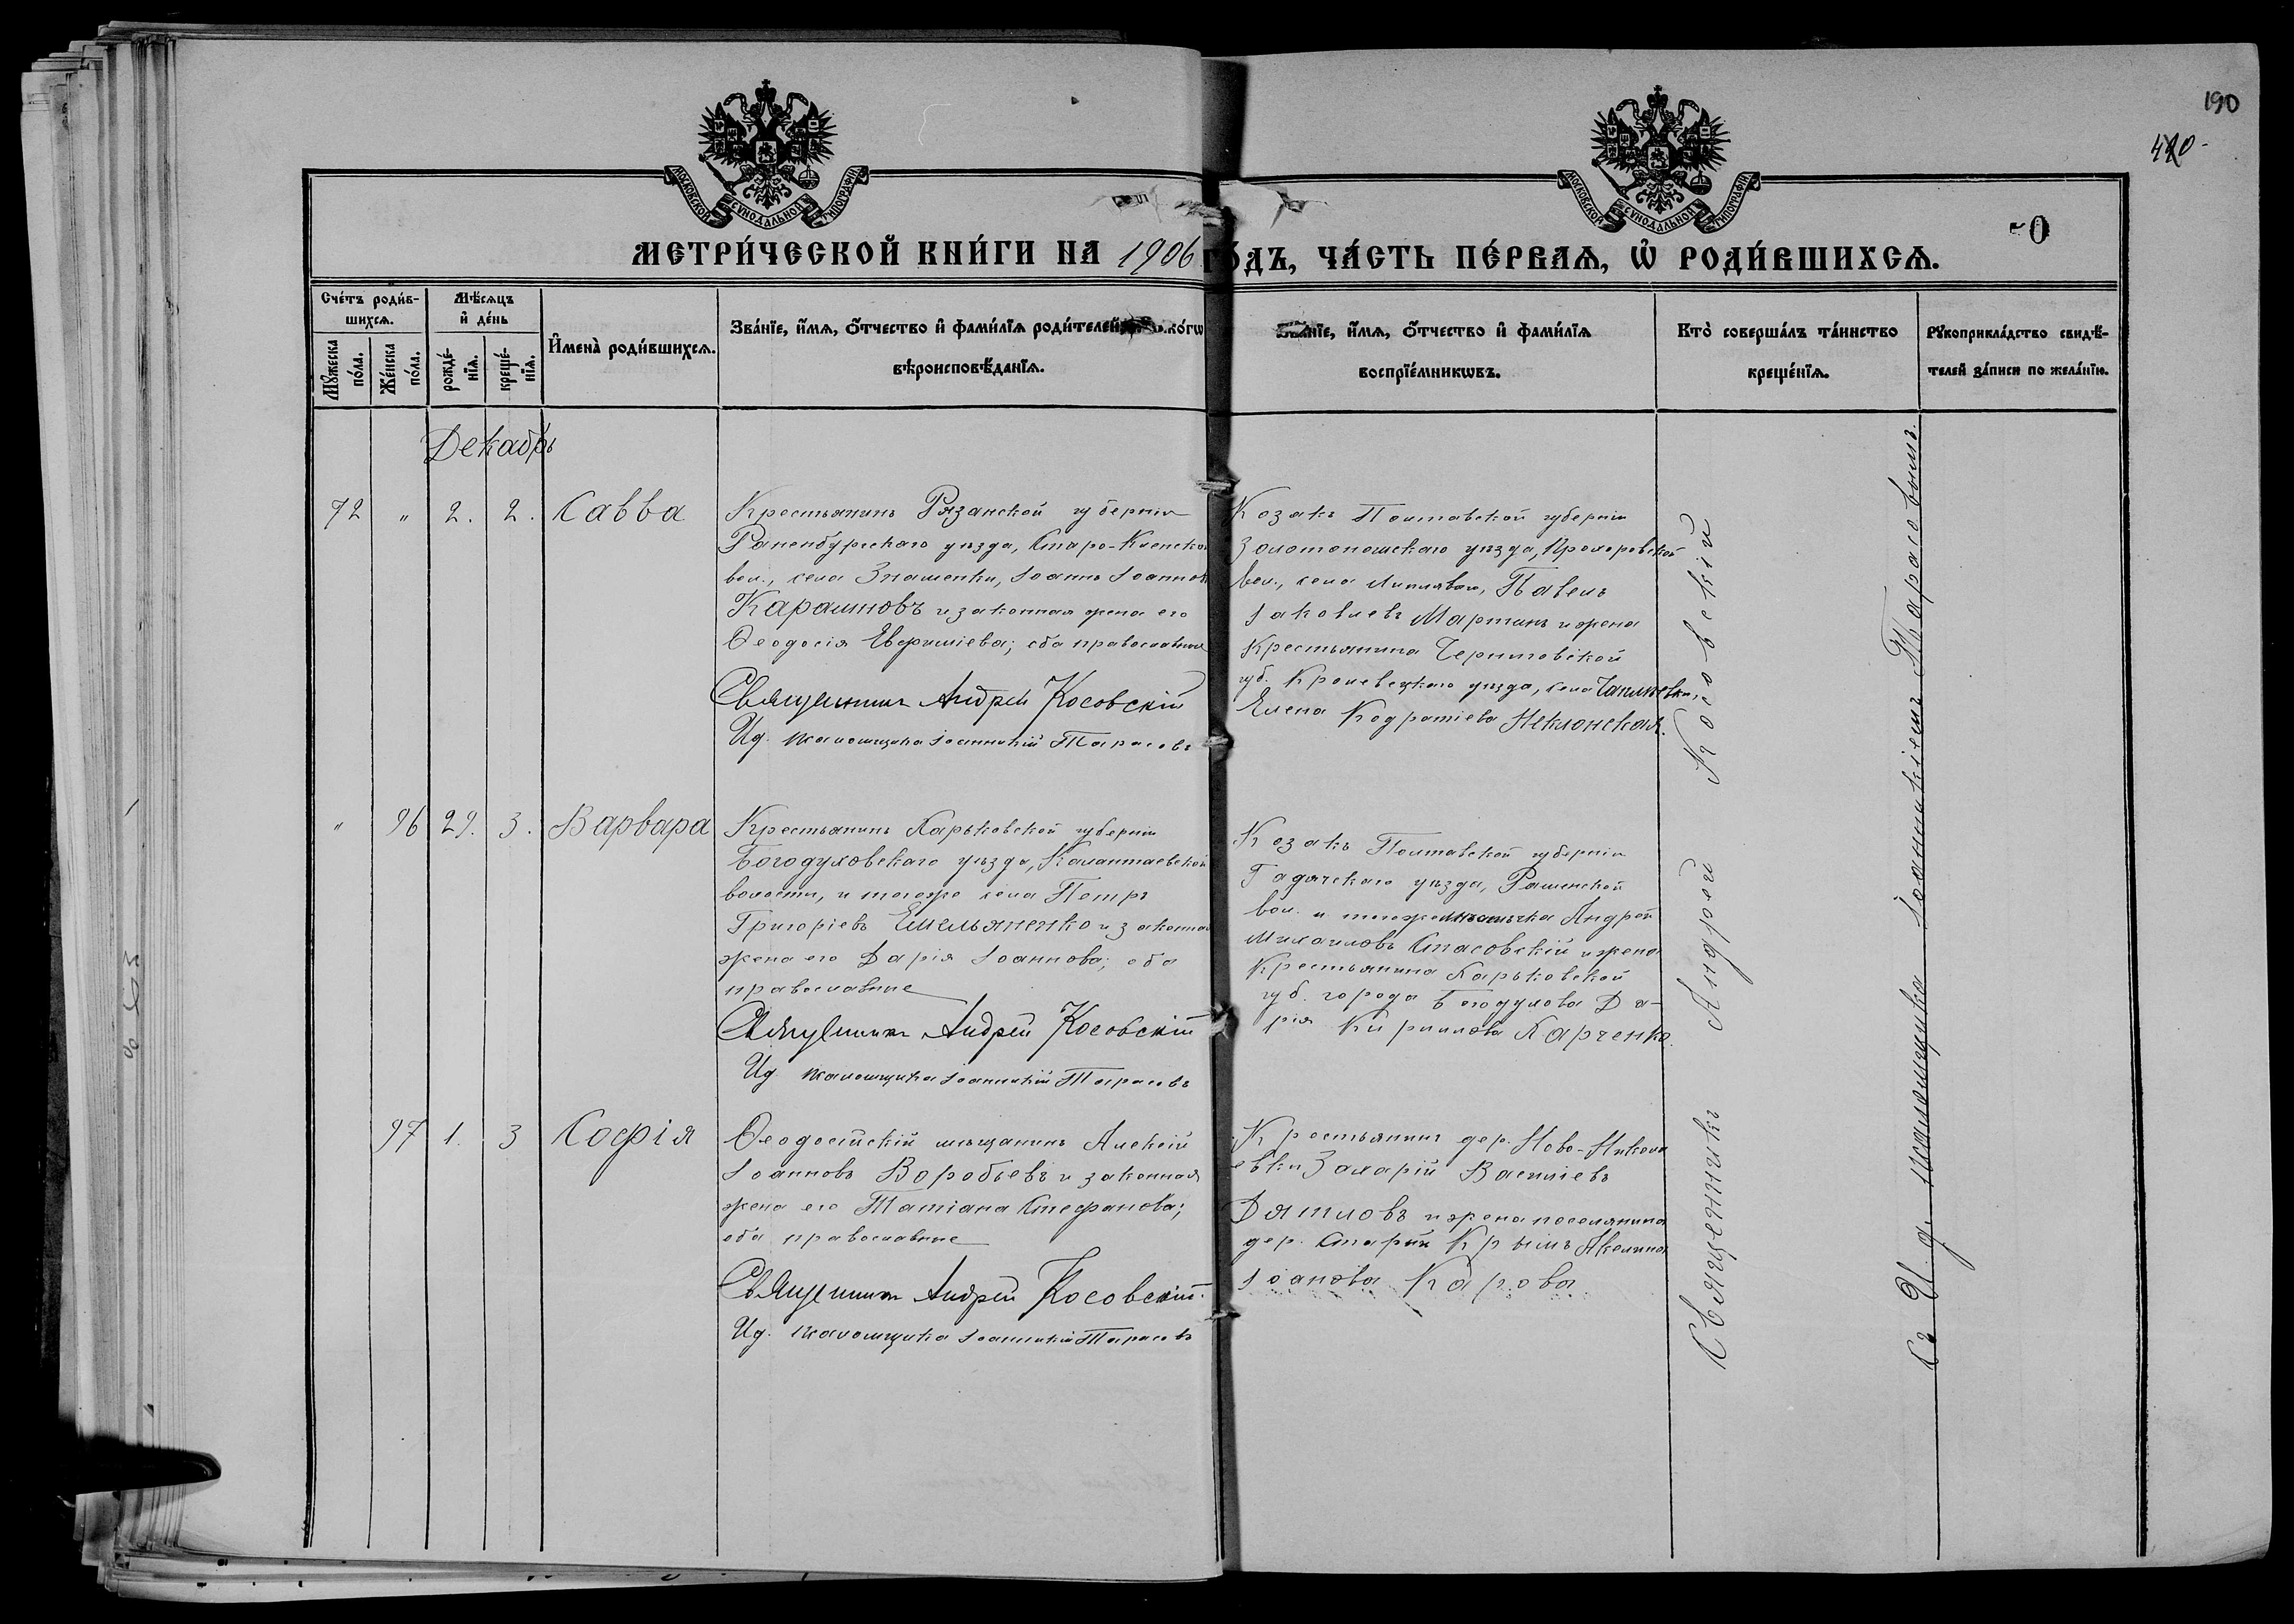 190
420-
МОСКОВСКОЙ СѴНОДАЛЬНОЙ ТИПОГРАФІИ
МОСКОВСКОЙ СѴНОДАЛЬНОЙ ТИПОГРАФІИ
МЕТРИ́ЧЕСКОЙ КНИ́ГИ НА 1906 ГО́ДЪ, ЧА́СТЬ ПЕ́РВАѦ, Ѡ҆ РОДИ́ВШИХСѦ.
Сче́тъ роди́в-
шихсѧ.
Мꙋ́жеска
по́ла.
Же́нска
по́ла.
Мѣ́сѧцъ
и҆ де́нь
рожде́-
нїѧ.
креще́-
нїѧ.
И҆мена̀ роди́вшихсѧ.
Зва́нїе, и҆́мѧ, ѻ҆́тчество и҆ фами́лїѧ роди́телей,
вѣроисповѣ́данїѧ.
Зва́нїе, и҆́мѧ, ѻ҆́тчество и҆ фами́лїѧ
воспрїе́мникѡвъ.
Кто̀ соверша́лъ та́инство
креще́нїѧ.
Рꙋкоприкла́дство свидѣ́-
телей за́писи по жела́нїю.
Декабрь
72 " 2. 2. Савва
Крестьянинъ Рязанской губерніи
Раненбургскаго уѣзда, Старо-Кленской
вол., села Знаменки, Іоаннъ Іоанновъ
Караимовъ и законная жена его
Ѳеодосія Евфиміева; оба православные
Священникъ Андрей Косовскій
И.д. псаломщика Іоанникій Тарасовъ
Козакъ Полтавской губерніи
Золотоношскаго уѣзда, Прохоровской
вол., села Липляваго, Павелъ
Іаковлевъ Мартинъ и жена
Крестьянина Черниговской
губ. Кролевецкаго уѣзда, села
Елена Кодратіева
" 96 29. 3. Варвара
Крестьянинъ Харьковской губерніи
Богодуховскаго уѣзда, Колонтаевской
волости, и тогоже села Петръ
Григоріевъ Емельяненко и законная
жена его Дарія Іоаннова; оба
православные
Священникъ Андрей Косовскій
И.д. псаломщика Іоанникій Тарасовъ
Козакъ Полтавской губерніи
Гадячскаго уѣзда, Рашевской
вол. и тогоже мѣстечка Андрей
Михаиловъ Стасовскій и жена
Крестьянина Харьковской
губ. города Богодухова Да-
рія Кириллова Харченко.
97 1. 3 Софія
Ѳеодосійскій мѣщанинъ Алексій
Іоанновъ Воробьевъ и законная
жена его Татіана Стефанова;
оба православные
Священникъ Андрей Косовскій.
И.д. псаломщика Іоанникій Тарасовъ
Крестьянинъ дер. Ново-Никола
евки Захарій Василіевъ
Дятловъ и жена поселянина
дер. Старый Крымъ Акелина
Іоанова Карова
Священникъ Андрей Косовскій
съ И. д. псаломщика Іоанникіемъ Тарасовымъ.